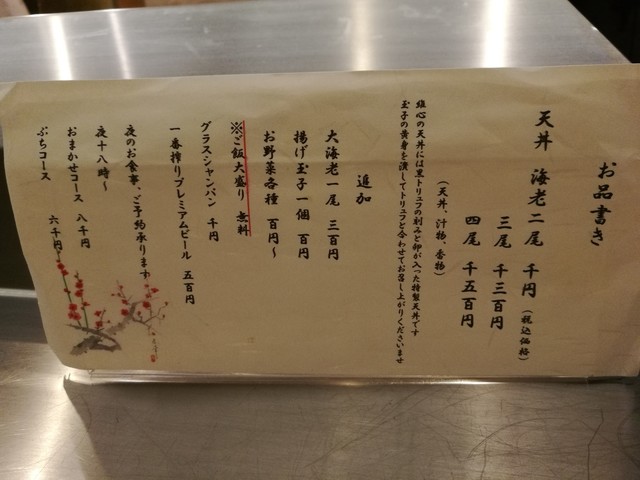 お品書き
天丼 海老二尾 千円（税込価格）
三尾 千三百円
四尾 千五百円
（天丼、汁物、香物）
雄心の天丼には黒トリュフの刻みと卵が入った特製天丼です
玉子の黄身を潰してトリュフと合わせてお召し上がりくださいませ
追加
大海老一尾 三百円
揚げ玉子一個 百円
お野菜各種 百円〜
※ご飯大盛り 無料
グラスシャンパン 千円
一番搾りプレミアムビール 五百円
夜のお食事、ご予約承ります
夜十八時〜
おまかせコース 八千円
ぷちコース 六千円